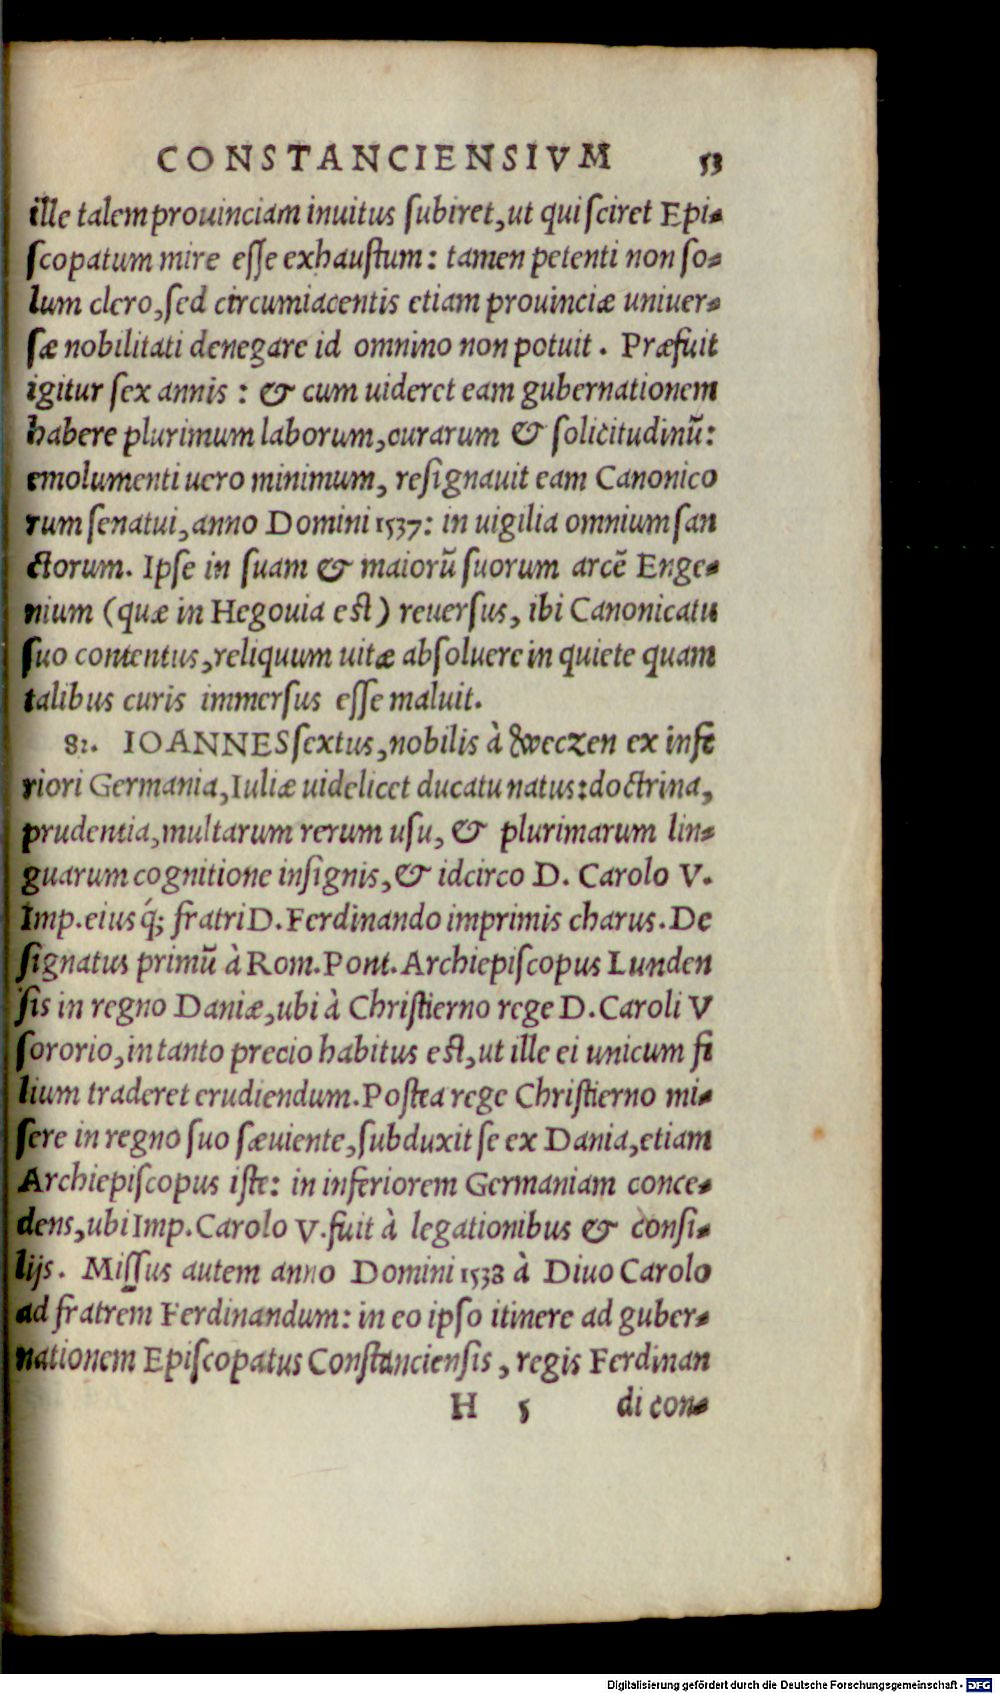 CONSTANCIENSIVM 53
ille talem prouinciam inuitus ſubiret, ut qui ſciret Epi-
ſcopatum mire eſſe exhauſtum: tamen petenti non ſo-
lum clero, ſed circumiacentis etiam prouinciæ uniuer-
ſæ nobilitati denegare id omnino non potuit. Præfuit
igitur ſex annis: & cum uideret eam gubernationem
habere plurimum laborum, curarum & ſolicitudinũ:
emolumenti uero minimum, reſignauit eam Canonico
rum ſenatui, anno Domini 1537: in uigilia omnium ſan
ctorum. Ipſe in ſuam & maiorũ ſuorum arcẽ Enge-
nium (quæ in Hegouia eſt) reuerſus, ibi Canonicatu
ſuo contentus, reliquum uitæ abſoluere in quiete quam
talibus curis immerſus eſſe maluit.
82. IOANNES ſextus, nobilis à Weczen ex infe
riori Germania, Iuliæ uidelicet ducatu natus: doctrina,
prudentia, multarum rerum uſu, & plurimarum lin-
guarum cognitione inſignis, & idcirco D. Carolo V.
Imp. eius q́; fratri D. Ferdinando imprimis charus. De
ſignatus primũ à Rom. Pont. Archiepiſcopus Lunden
ſis in regno Daniæ, ubi à Chriſtierno rege D. Caroli V
ſororio, in tanto precio habitus eſt, ut ille ei unicum fi
lium traderet erudiendum. Poſtea rege Chriſtierno mi-
ſere in regno ſuo ſæuiente, ſubduxit ſe ex Dania, etiam
Archiepiſcopus iſte: in inferiorem Germaniam conce-
dens, ubi Imp. Carolo V. fuit à legationibus & conſi-
lijs. Miſſus autem anno Domini 1538 à Diuo Carolo
ad fratrem Ferdinandum: in eo ipſo itinere ad guber-
nationem Epiſcopatus Conſtanciensis, regis Ferdinan
H 5 di con-
Digitalisierung gefördert durch die Deutsche Forschungsgemeinschaft - DFG